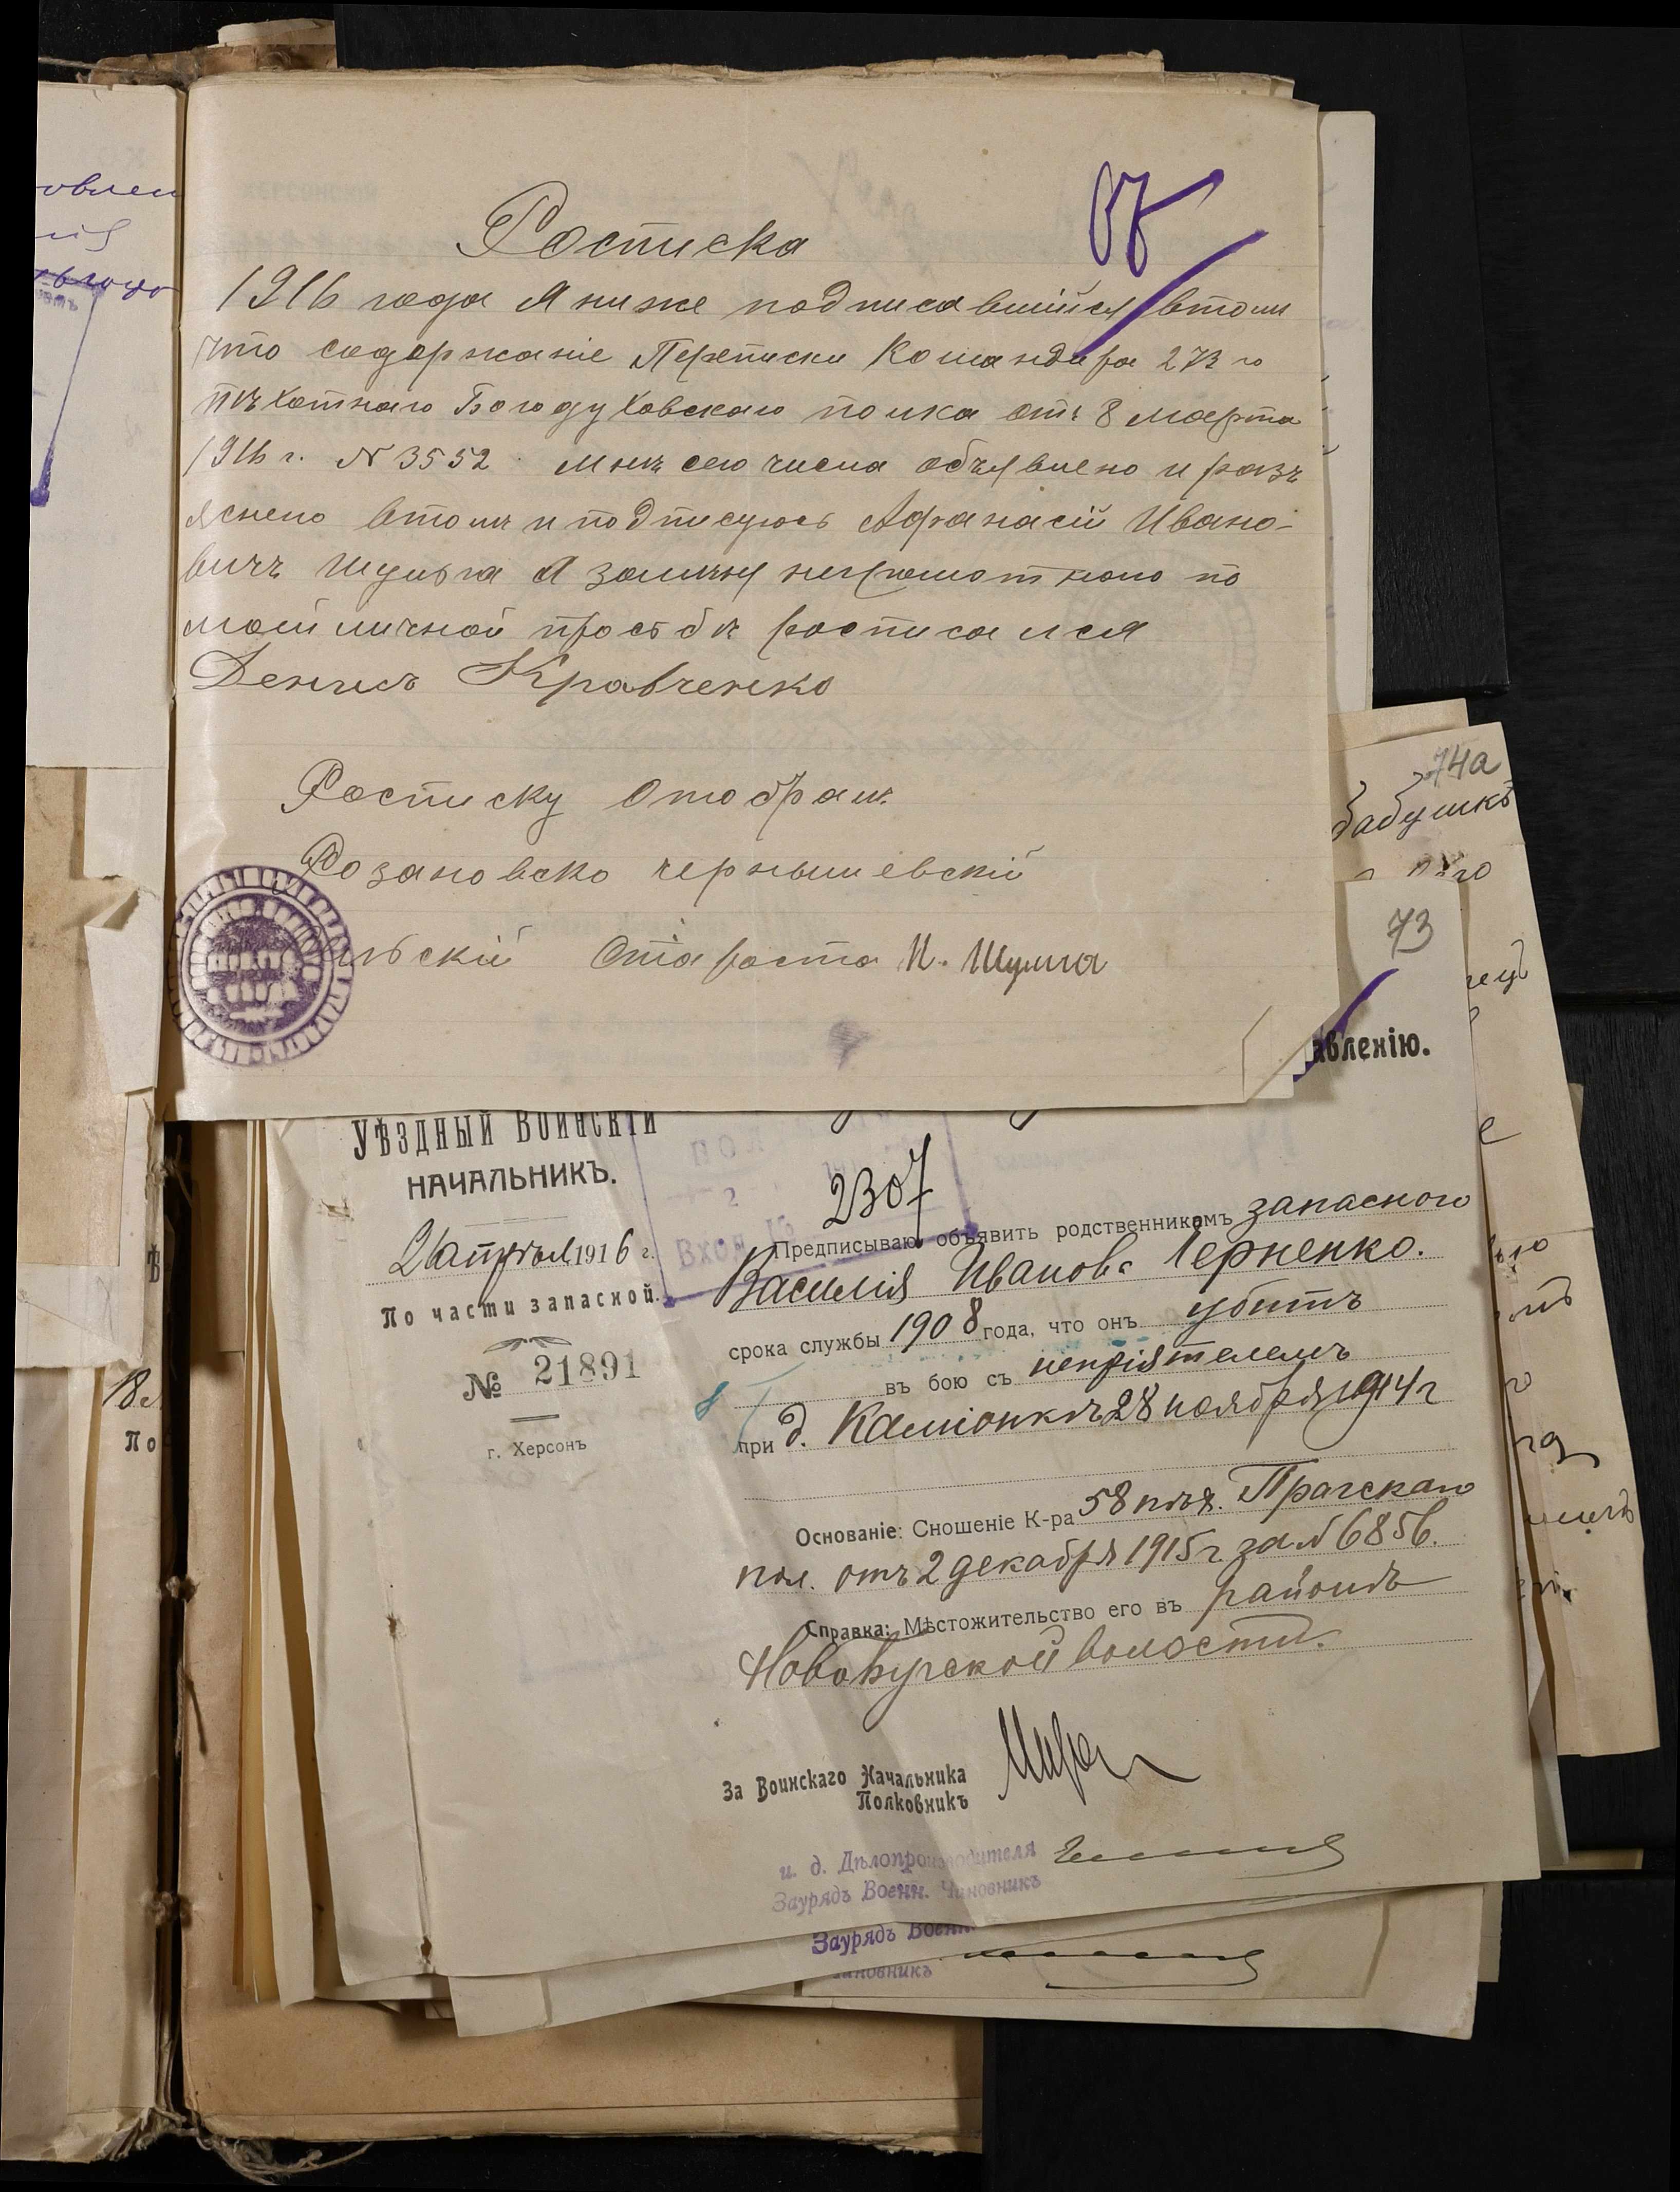 Росписка
1916 года Я ниже подписавшійся втом
что содержаніе Переписки Командира 273 го
пѣхотнаго Богодуховскаго полка отъ 8 марта
1916 г. N 3552 мнѣ сего числа объявлено и разъ
яснено втомъ и подписуюсь Афанасій Ивано-
вичъ Шульга А занимъ неграмотного по
моей личной прозьбѣ росписался
Денисъ Кравченко
Росписку отобралъ
Розановско чернышевскій
льскій Староста И. Шулга
74а
бабушкѣ
73
авленію.
Уѣздный Воинскій
Начальникъ.
2 апрѣля 1916 г.
По части запасной.
№ 21891
г. Херсонъ
2307
Предписываю объявить родственникамъ запасного
Василія Иванова Черненко.
срока службы 1908 года, что онъ убитъ
въ бою съ непріятелемъ
при д. Каміонкѣ 28 ноября 1914 г
Основаніе: Сношеніе К-ра 58 пѣх. Прагскаго
пол. отъ 2 декабря 1915 г. за № 6856.
Справка: Мѣстожительство его въ районѣ
НовоБугской волости.
За Воинскаго Начальника
Полковникъ
и. д. Дѣлопроизводителя
Зауряд Военн. Чиновникъ
Зауряд Военн.
чиновникъ
18
По